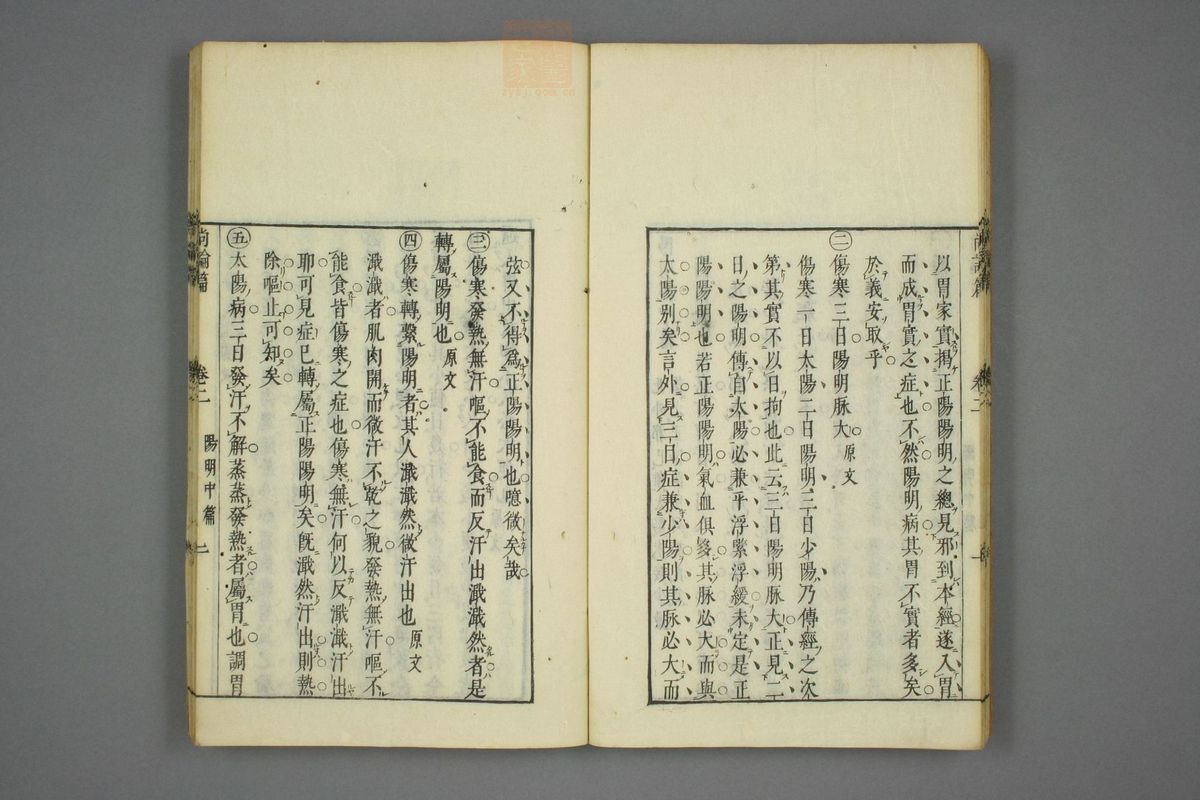 以胃家實揭正陽陽明之總見邪到本經遂入胃
而成胃實之症也不然陽明病其胃不實者多矣
於義安取乎
㊁傷寒三日陽明脉大原文
傷寒一日太陽二日陽明三日少陽乃傳經之次
第其實不以日拘也此云三日陽明脉大正見二
日之陽明傳自太陽必兼乎浮緊浮緩未定是正
陽陽明也若正陽陽明氣血俱多其脉必大而與
太陽別矣言外見三日症兼少陽則其脉必大而
弦又不得為正陽陽明也噫微矣哉
㊂傷寒發熱無汗嘔不能食而反汗出濈濈然者是
轉屬陽明也原文
㊃傷寒轉繫陽明者其人濈濈然微汗出也原文
濈濈者肌肉開而微汗不乾之貌發熱無汗嘔不
能食皆傷寒之症也傷寒無汗何以反濈濈汗出
耶可見症已轉屬正陽陽明矣既濈然汗出則熱
除嘔止可知矣
㊄太陽病三日發汗不解蒸蒸發熱者屬胃也調胃
尚論篇 卷二 陽明中篇